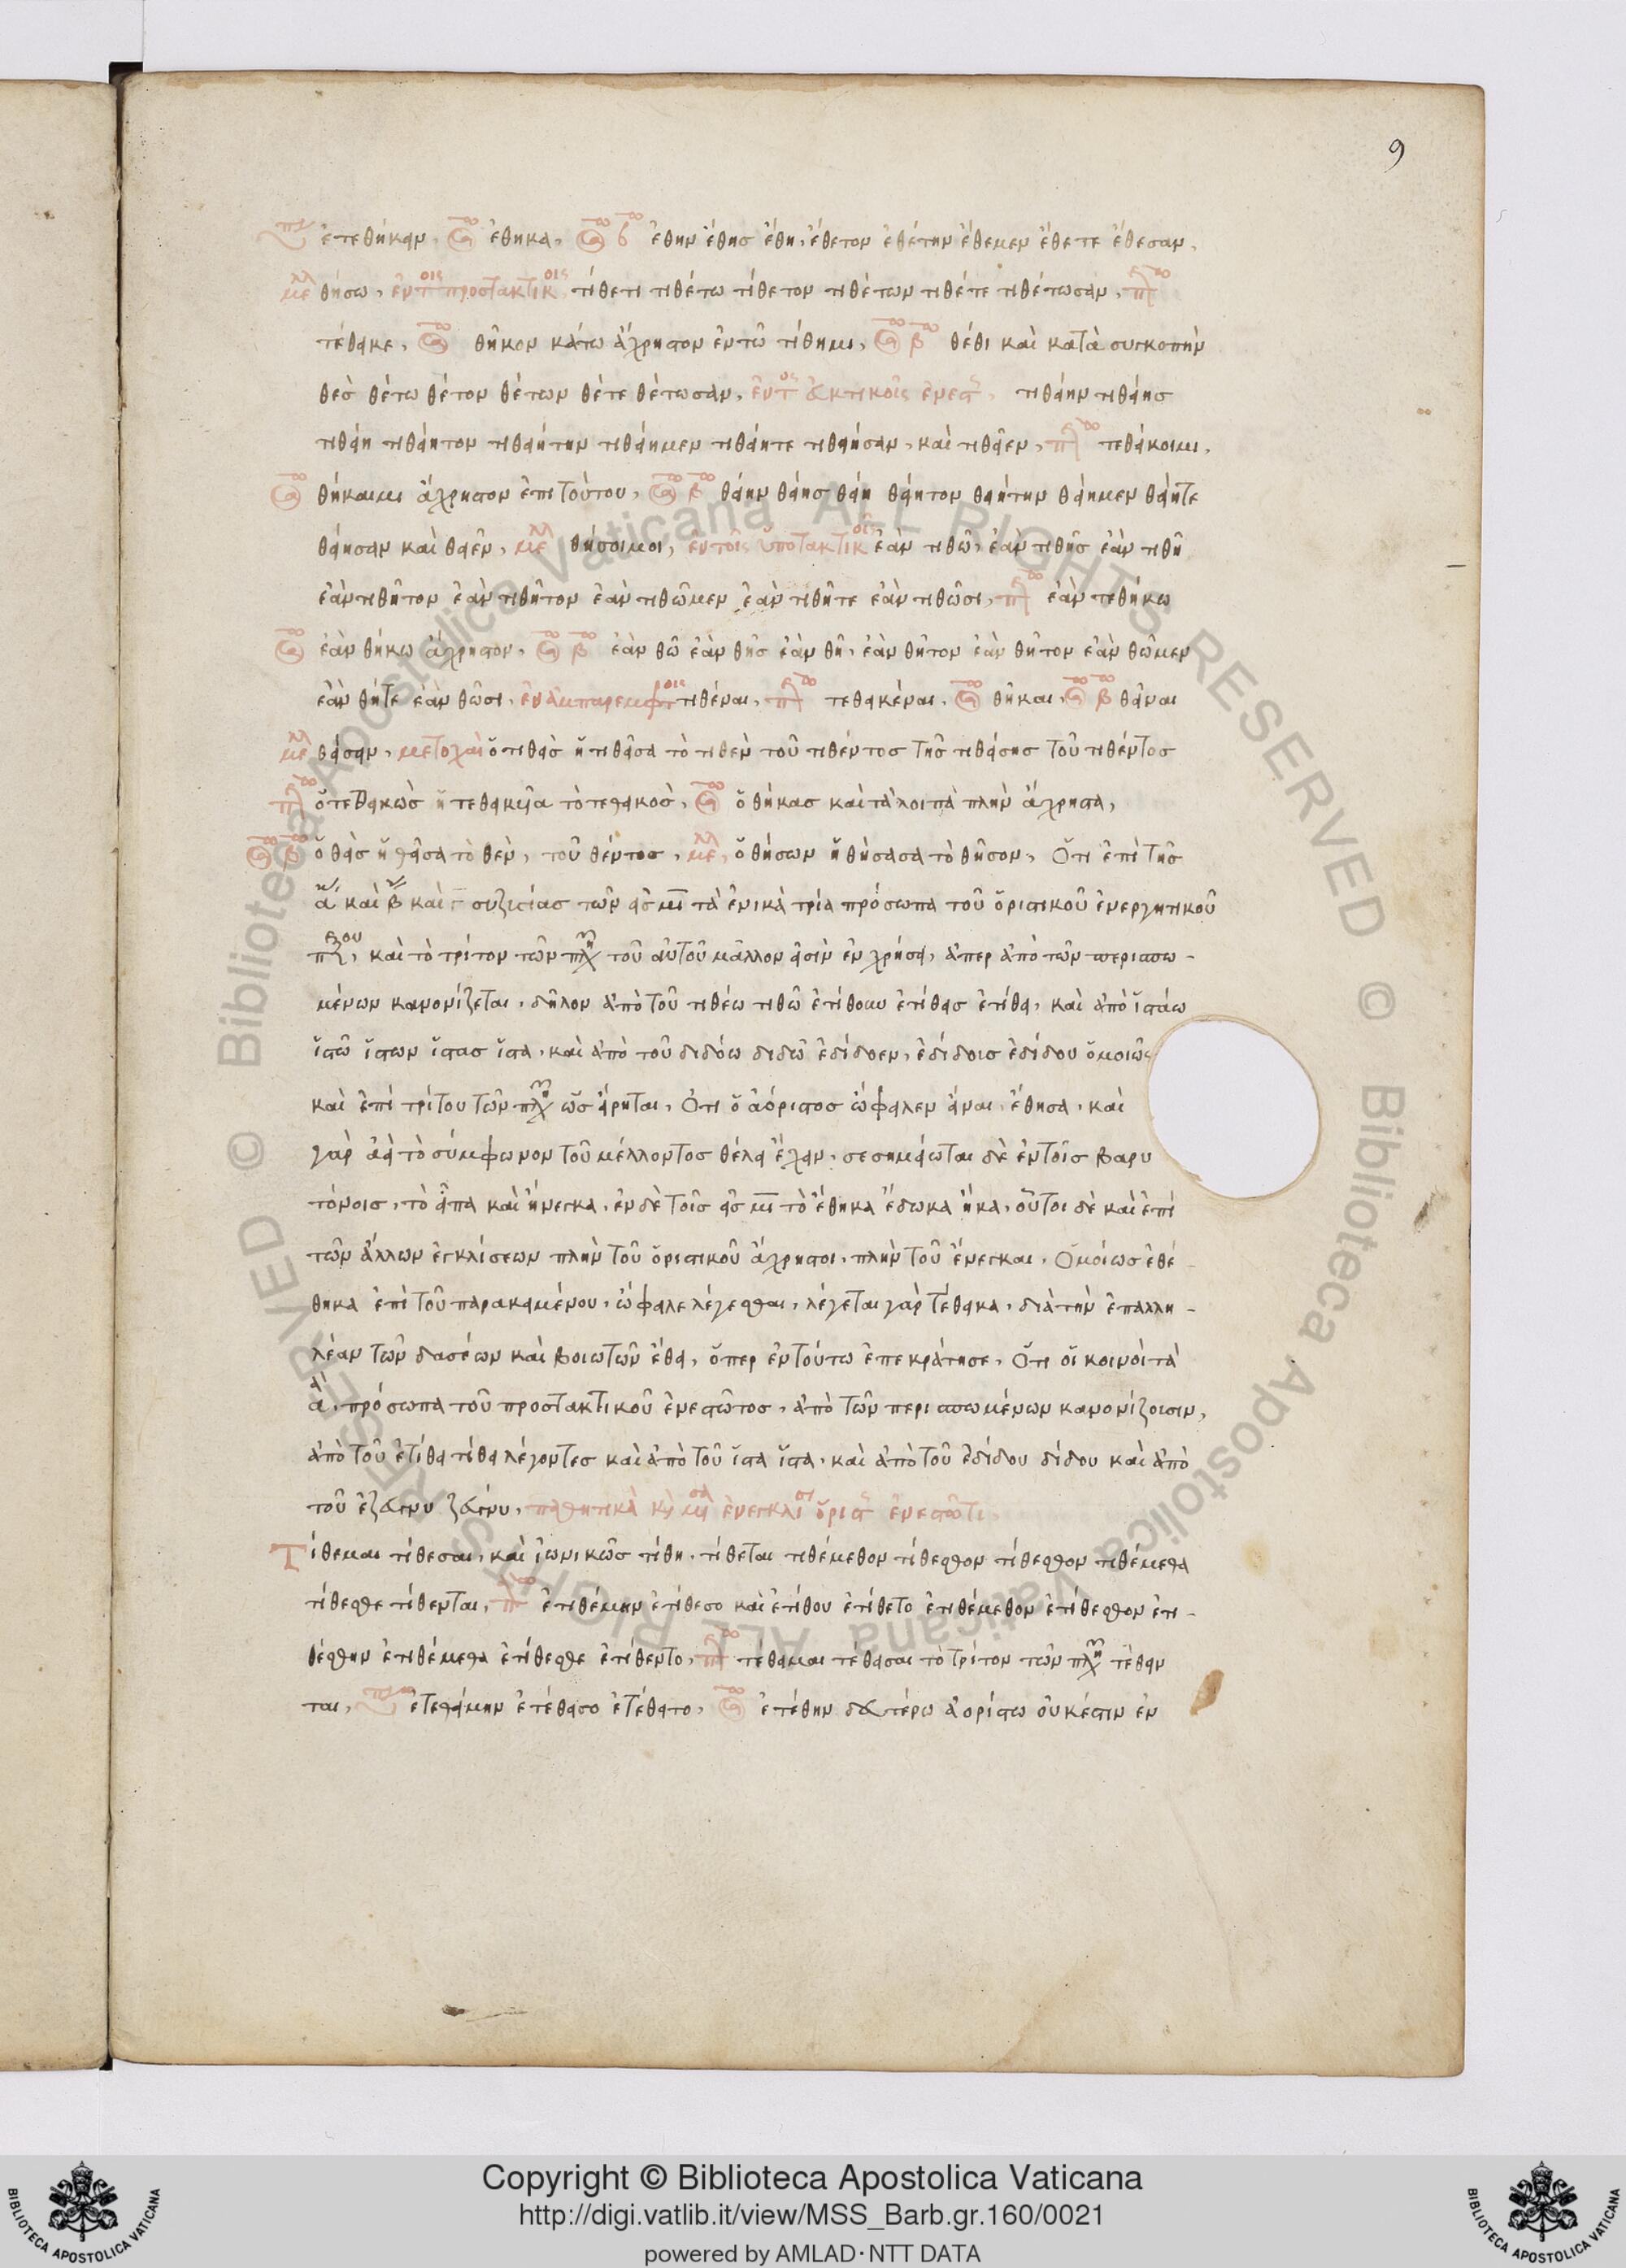 9
ἐτεθήκειν, ἔθηκα, β ἔθην ἔθης ἔθη, ἔθετον ἐθέτην ἔθεμεν ἔθετε ἔθεσαν,
θήσω, προστακτικοις τίθετι τιθέτω τίθετον τιθέτων τιθέτε τιθέτωσαν,
τέθεικε, θῆκον κάτω ἄχρηστον ἐν τῶ τίθημι, β θέθι καὶ κατὰ συγκοπὴν
θὲς θέτω θέτον θέτων θέτε θέτωσαν, εὐκτικοῖς τιθείην τιθείης
τιθείη τιθείητον τιθειήτην τιθείημεν τιθείητε τιθείησαν, καὶ τιθεῖεν, τεθείκοιμι,
θήκαιμι ἄχρηστον ἐπὶ τούτου, β θείην θείης θείη θείητον θειήτην θείημεν θείητε
θείησαν καὶ θεῖεν, θήσοιμοι, ἐν τοῖς ὑποτακτικοῖς ἐὰν τιθῶ, ἐὰν τιθῆς ἐὰν τιθῆ
ἐὰν τιθῆτον ἐὰν τιθῆτον ἐὰν τιθῶμεν ἐὰν τιθῆτε ἐὰν τιθῶσι, ἐὰν τεθήκω
ἐὰν θήκω ἄχρηστον, β ἐὰν θῶ ἐὰν θῆς ἐὰν θῆ, ἐὰν θῆτον ἐὰν θῆτον ἐὰν θῶμεν
ἐὰν θῆτε ἐὰν θῶσι, τιθέναι, τεθεικέναι, θῆκαι, β θεῖναι
μετοχαὶ ὁ τιθεὶς ἡ τιθεῖσα τὸ τιθὲν τοῦ τιθέντος τῆς τιθείσης τοῦ τιθέντος
ὁ τεθεικὼς ἡ τεθεικυῖα τὸ τεθεικὸς, ὁ θήκας καὶ τὰ λοιπὰ πλὴν ἄχρηστα,
ὁ θεὶς ἡ θεῖσα τὸ θὲν, τοῦ θέντος, ὁ θήσων ἡ θήσασα τὸ θῆσον, Ὅτι ἐπὶ τῆς
καὶ β καὶ συζυγίας τῶν εἰς μι τὰ ἑνικὰ τρία πρόσωπα τοῦ ὁριστικοῦ ἐνεργητικοῦ
καὶ τὸ τρίτον τῶν τοῦ αὐτοῦ μᾶλλον εἰσὶν ἐν χρήσει, ἅπερ ἀπὸ τῶν περισπω-
μένων κανονίζεται, δῆλον ἀπὸ τοῦ τιθέω τιθῶ ἐτίθουν ἐτίθεις ἐτίθει, καὶ ἀπὸ ἱστάω
ἱστῶ ἵστων ἵστας ἵστα, καὶ ἀπὸ τοῦ διδόω διδῶ ἐδίδοεν, ἐδίδοις ἐδίδου ὁμοίως
καὶ ἐπὶ τρίτου τῶν ὡς εἴρηται, Ὅτι ὁ ἀόριστος ὤφειλεν εἶναι, ἔθησα, καὶ
γὰρ ἀεὶ τὸ σύμφωνον τοῦ μέλλοντος θέλει ἔχειν, σεσημείωται δὲ ἐν τοῖς βαρυ
τόνοις, τὸ εἶπα καὶ ἤνεγκα, ἐν δὲ τοῖς εἰς μι τὸ ἔθηκα ἔδωκα ἧκα, οὗτοι δὲ καὶ ἐπὶ
τῶν ἄλλων ἐγκλίσεων πλὴν τοῦ ὁριστικοῦ ἄχρηστοι, πλὴν τοῦ ἔνεγκαι, Ὁμοίως ἐθέ
θηκα ἐπὶ τοῦ παρακειμένου, ὤφειλε λέγεσθαι, λέγεται γὰρ τέθεικα, διὰ τὴν ἐπαλλη-
λίαν τῶν δασέων καὶ βοιωτῶν ἔθει, ὅπερ ἐν τούτω ἐπεκράτησε, Ὅτι οἱ κοινοὶ τὰ
πρόσωπα τοῦ προστακτικοῦ ἐνεστῶτος, ἀπὸ τῶν περισπωμένων κανονίζουσιν,
ἀπὸ τοῦ ἐτίθει τίθει λέγοντες καὶ ἀπὸ τοῦ ἵστα ἵστα, καὶ ἀπὸ τοῦ ἐδίδου δίδου καὶ ἀπὸ
τοῦ ἐζεύγνυ ζεύγνυ, παθητικὰ
Τίθεμαι τίθεσαι, καὶ ἰωνικῶς τίθη, τίθεται τιθέμεθον τίθεσθον τίθεσθον τιθέμεθα
τίθεσθε τίθενται, ἐτιθέμην ἐτίθεσο καὶ ἐτίθου ἐτίθετο ἐτιθέμεθον ἐτίθεσθον ἐτι-
θέσθην ἐτιθέμεθα ἐτίθεσθε ἐτίθεντο, τέθειμαι τέθεισαι τὸ τρίτον τῶν τέθειν
ται, ἐτεθείμην ἐτέθεισο ἐτέθειτο, ἐτέθην δευτέρω ἀορίστω οὐκ ἔστιν ἐν
ALL RIGHTS RESERVED © Biblioteca Apostolica Vaticana ALL RIGHTS RESERVED © Biblioteca Apostolica Vaticana
Copyright © Biblioteca Apostolica Vaticana
http://digi.vatlib.it/view/MSS_Barb.gr.160/0021
powered by AMLAD·NTT DATA
BIBLIOTECA APOSTOLICA VATICANA
BIBLIOTECA APOSTOLICA VATICANA